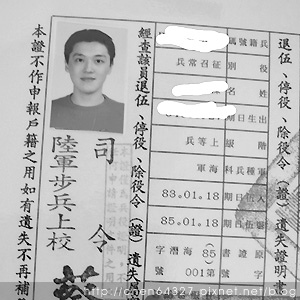 兵籍號碼
役別 征召常兵
姓名
出生日期
階級 上等兵
軍種兵科 海軍
入伍日期 83.01.18
退伍日期 85.01.18
原證書字號 (85)海潛字 001號
經查該員退伍、停役、除役令(證)遺失
司令
陸軍步兵上校
本證不作申報戶籍之用如有遺失不再補
http://chen64327.pixnet.net/blog